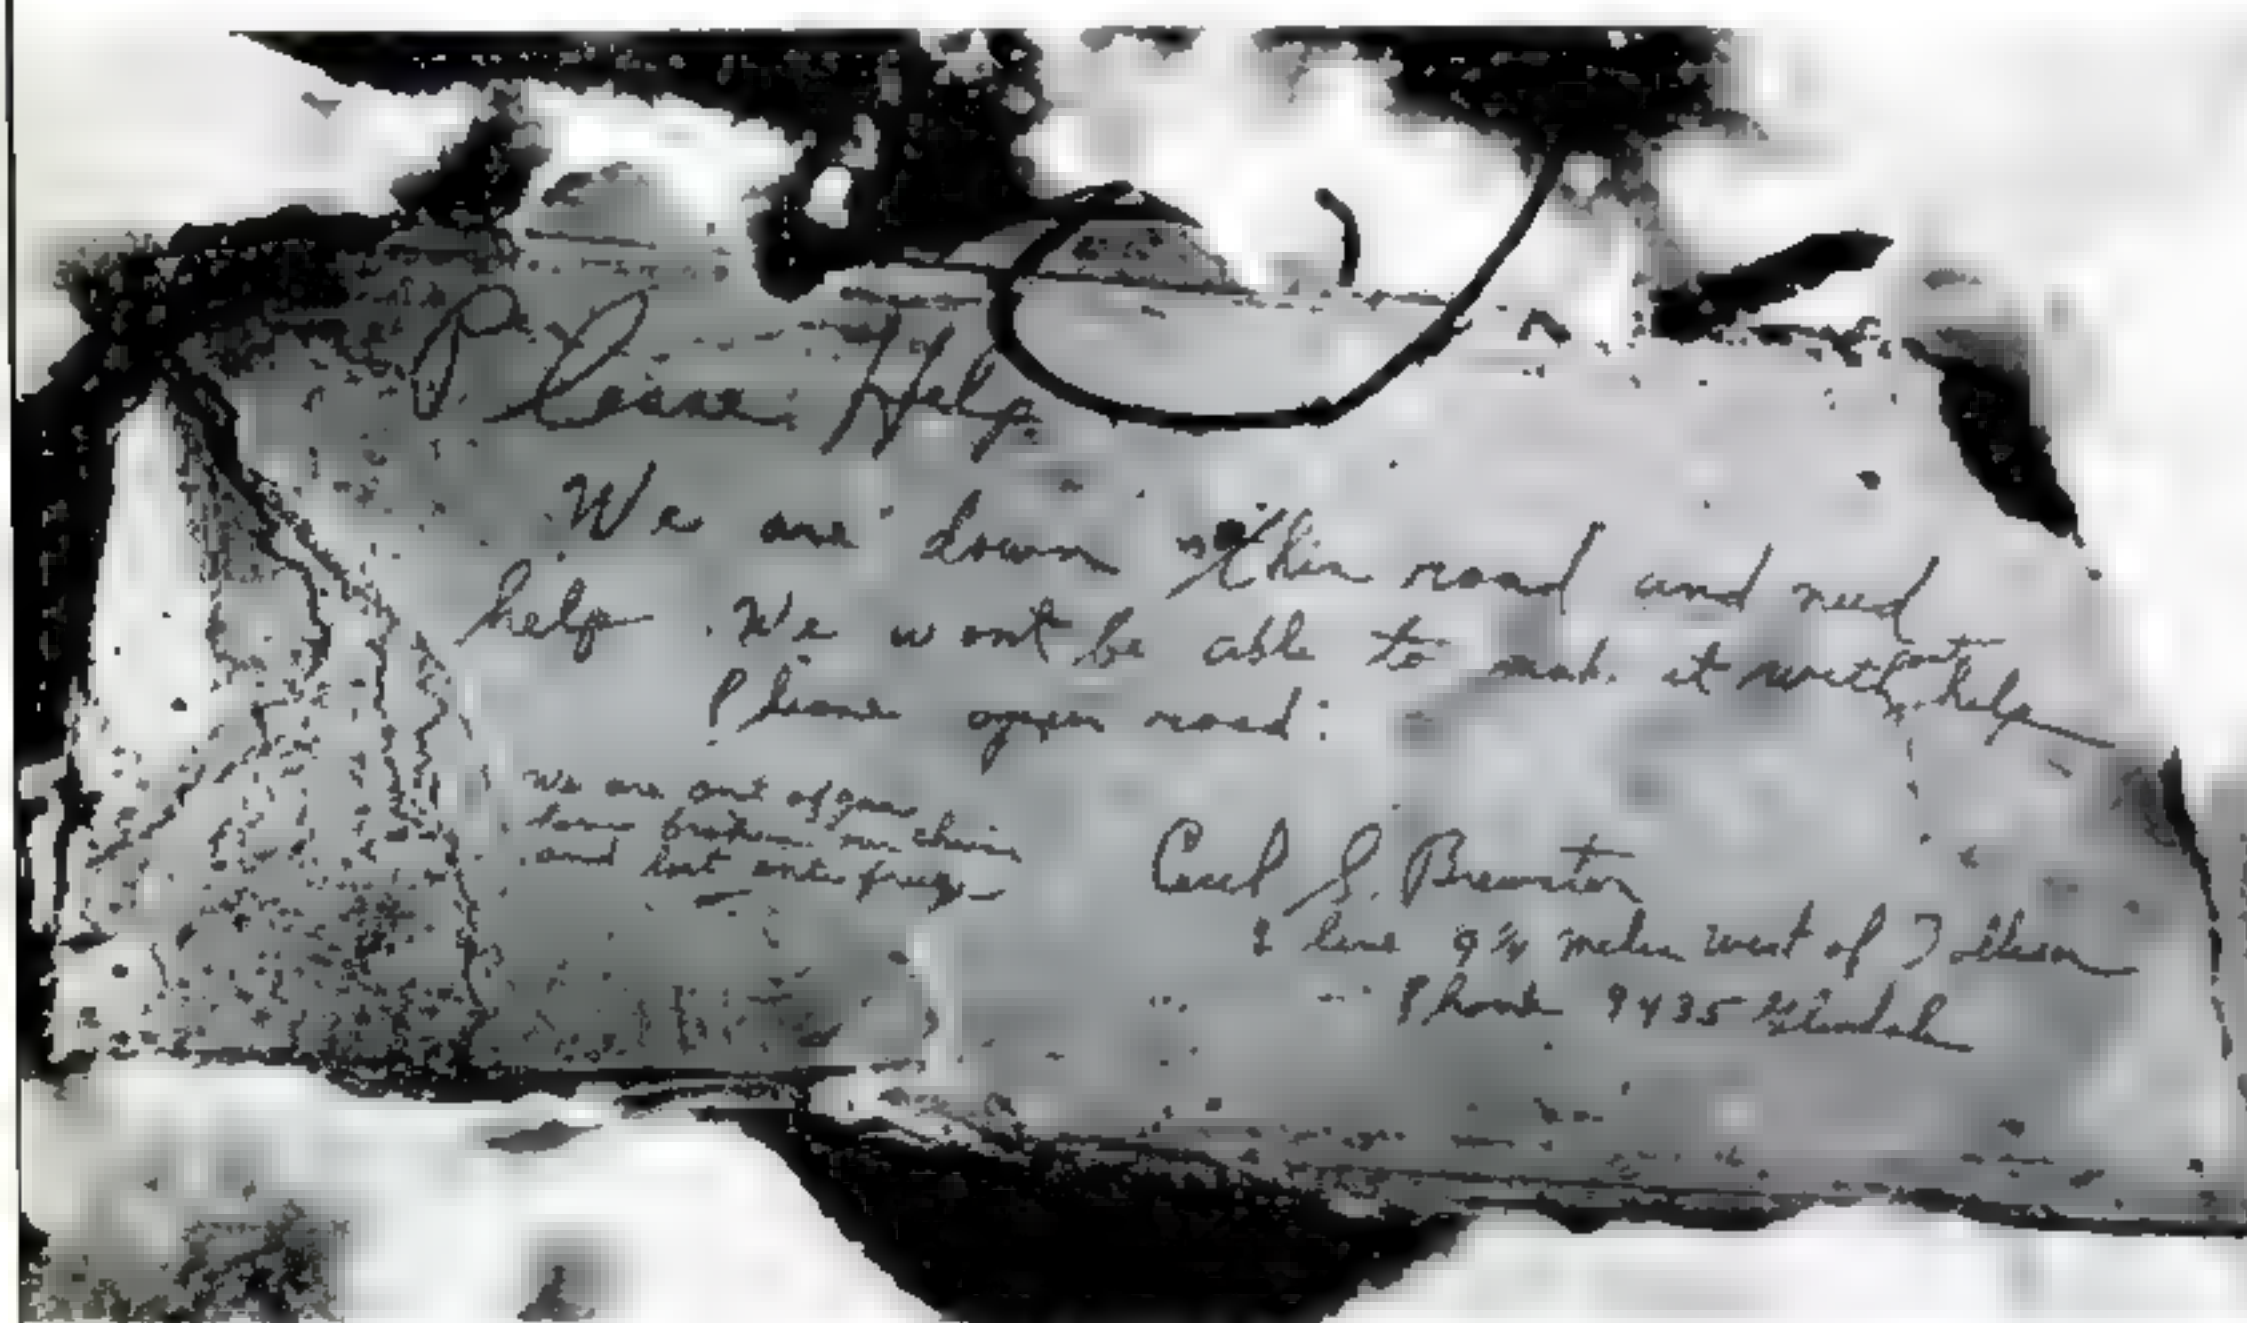 Please Help
We are down this road and need
help. We wont be able to make it without help
Please open road:
We are out of gas
have broken chain
and lost anti freeze
Cecil S. Brewster
I live 9 3/4 miles west of
Phone 9435 Glendale